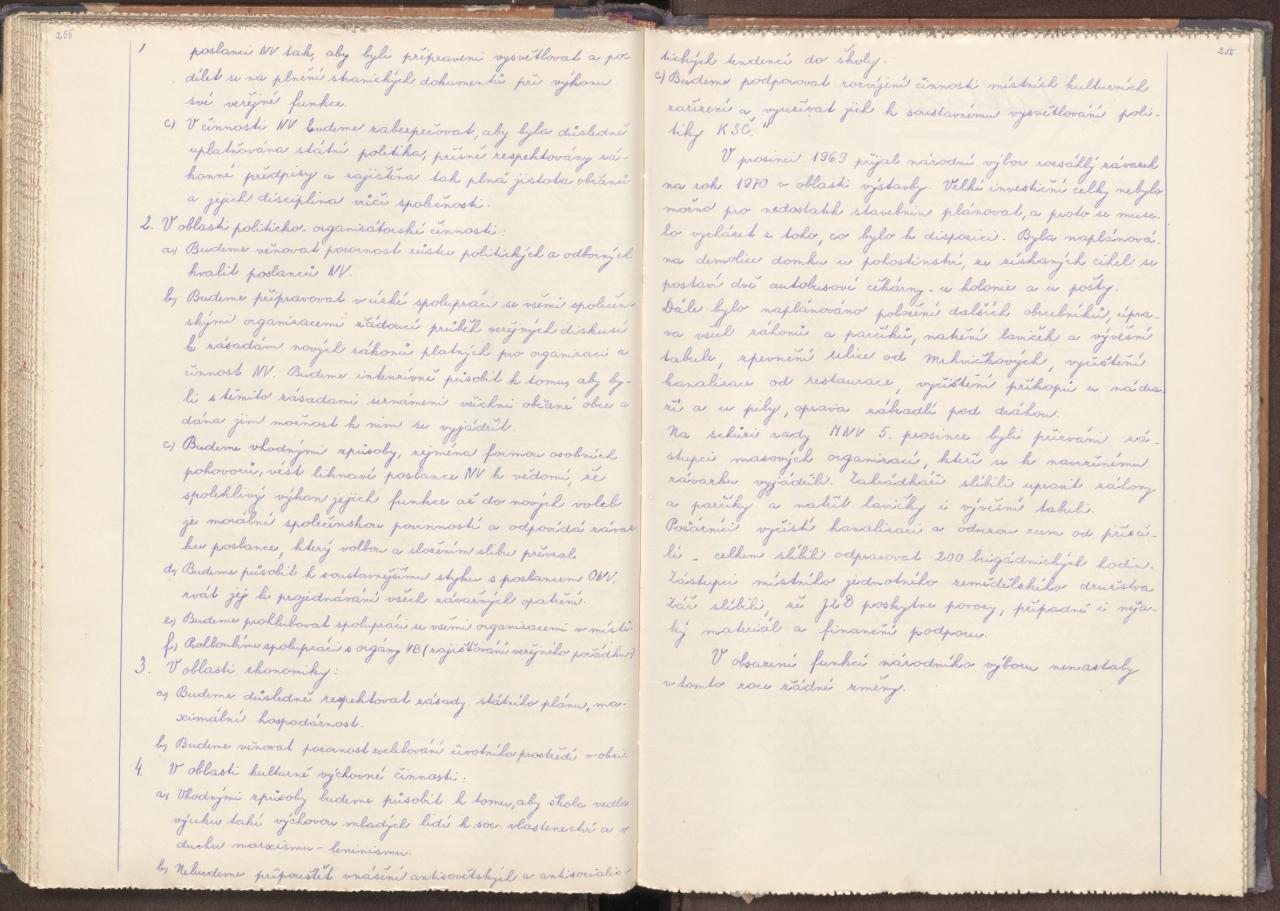 255
1 poslanci NV tak, aby byli připraveni vysvětlovat a po-
dílet se na plnění stranických dokumentů při výkonu
své veřejné funkce.
c) V činnosti NV budeme zabezpečovat, aby byla důsledně
uplatňována státní politika, přísně respektovány zá-
konné předpisy a zajištěna tak plná jistota občanů
a jejich disciplina vůči společnosti.
2. V oblasti politicko organizátorské činnosti:
a) Budeme věnovat pozornost růstu politických a odborných
kvalit poslanců NV.
b) Budeme připravovat v úzké spolupráci se všemi společen-
skými organizacemi žádoucí průběh veřejných diskusí
k zásadám nových zákonů platných pro organizaci a
činnost NV. Budeme intenzivně působit k tomu, aby by-
li s těmito zásadami seznámeni všichni občané obce a
dána jim možnost k nim se vyjádřit.
c) Budeme vhodnými způsoby, zejména formou osobních
pohovorů, vést liknavé poslance NV k vědomí, že
spolehlivý výkon jejich funkce až do nových voleb
je morální společenskou povinností a odpovídá závaz
ku poslance, který volbou a složením slibu převzal.
d) Budeme působit k soustavnějšímu styku s poslancem ONV,
zvát jej k projednávání všech závažných opatření.
e) Budeme prohlubovat spolupráci se všemi organizacemi v místě.
f) Prohloubíme spolupráci s orgány VB (zajišťování veřejného pořádku)
3. V oblasti ekonomiky:
a) Budeme důsledně respektovat zásady státního plánu, ma-
ximální hospodárnost.
b) Budeme věnovat pozornost zvelebování životního prostředí v obci.
4. V oblasti kulturně výchovné činnosti:
a) Vhodnými způsoby budeme působit k tomu, aby škola vedla
výuku také výchovou mladých lidí k soc. vlastenectví a v
duchu marxismu-leninismu.
b) Nebudeme připouštět vnášení antisovětských a antisocialis-
256
tických tendencí do školy.
c) Budeme podporovat rozvíjení činnosti místních kulturních
zařízení a využívat jich k soustavnému vysvětlování poli-
tiky KSČ."
V prosinci 1969 přijal národní výbor rozsáhlý závazek
na rok 1970 v oblasti výstavby. Velké investiční celky nebylo
možno pro nedostatek stavebnin plánovat, a proto se muse-
lo vycházet z toho, co bylo k dispozici. Byla naplánová-
na demolice domku u pohostinství, ze získaných cihel se
postaví dvě autobusové čekárny - u kolonie a u pošty.
Dále bylo naplánováno položení dalších obrubníků, úpra-
va všech záhonů a parčíků, natření laviček a vývěsní
tabule, zpevnění ulice od Mrkvičkových, vyčištění
kanalizace od restaurace, vyčištění příkopů u nádra-
ží a u pily, oprava zábradlí pod dráhou.
Na schůzi rady MNV 5. prosince byli přizváni zá-
stupci masových organizací, kteří se k navrženému
závazku vyjádřili. Zahrádkáři slíbili upravit záhony
a parčíky a natřít lavičky i vývěsní tabuli.
Požárníci vyčistí kanalizaci a odvezou rum od přísá-
lí - celkem slíbili odpracovat 200 brigádnických hodin.
Zástupci místního jednotného zemědělského družstva
Září slíbili, že JZD poskytne povozy, případně i něja-
ký materiál a finanční podporu.
V obsazení funkcí národního výboru nenastaly
v tomto roce žádné změny.